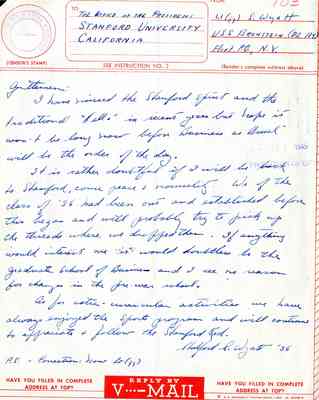 TO:
THE OFFICE OF THE PRESIDENT
STANFORD UNIVERSITY
CALIFORNIA
FROM
Lt(jg) R. Wyatt
U.S.S.
Fleet P.O., N.Y.
(CENSOR'S STAMP)
SEE INSTRUCTION NO. 2
(Sender's complete address above)
Gentlemen:
I have missed the Stanford Spirit and the
traditional "Hello" in recent years but hope it
won't be long now before business as usual
will be the order of the day.
It is rather doubtful if I will be back
to Stanford, come peace & normalcy. We of the
class of '36 had been out and established before
this began and will probably try to pick up
the threads where we dropped them. If anything
would interest me it would doubtless be the
graduate School of Business and I see no reason
for changes in the pre war school.
As for extra-curricular activities we have
always enjoyed the Sports program and will continue
to appreciate & follow the Stanford Red.
R. Wyatt '36
P.S. - Correction: Now Lt(jg)
HAVE YOU FILLED IN COMPLETE
ADDRESS AT TOP?
REPLY BY
V···—MAIL
HAVE YOU FILLED IN COMPLETE
ADDRESS AT TOP?